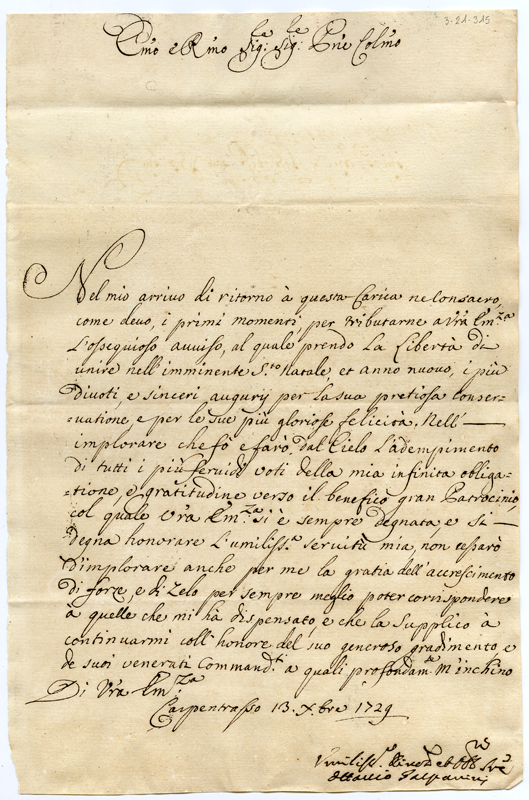 3-21-315
Emo e Rmo Sig:re Sig:re Prne Colmo
Nel mio arrivo di ritorno à questa Carica ne consacro,
come devo, i primi momenti, per tributarne a Vra Em.za
l'ossequioso avviso, al quale prendo la libertà di
unire nell'imminente S.to Natale et anno nuovo, i più
divoti, e sinceri augurij per la sua pretiosa conser=
=uatione, e per le sue più gloriose felicità. Nell'
implorare che fò e farò dal Cielo l'adempimento
di tutti i più fervidi voti della mia infinita obliga=
=tione, e gratitudine verso il benefico gran Patrocinio,
col quale Vra Em.za si è sempre degnata e si
degna honorare l'umiliss.a servitù mia, non cesserò
d'implorare anche per me la gratia dell'accrescimento
di forze, e di Zelo per sempre meglio poter corrispondere
à quelle che mi hà dispensato, e che la supplico à
continuarmi coll'honore del suo generoso gradimento, e
de suoi venerati Command.ti a quali profondam.te m'inchino
Di Vra Em.za
Carpentrasso 13. Xbre 1729
Vmiliss.o Divot.o et Obb.o Sre